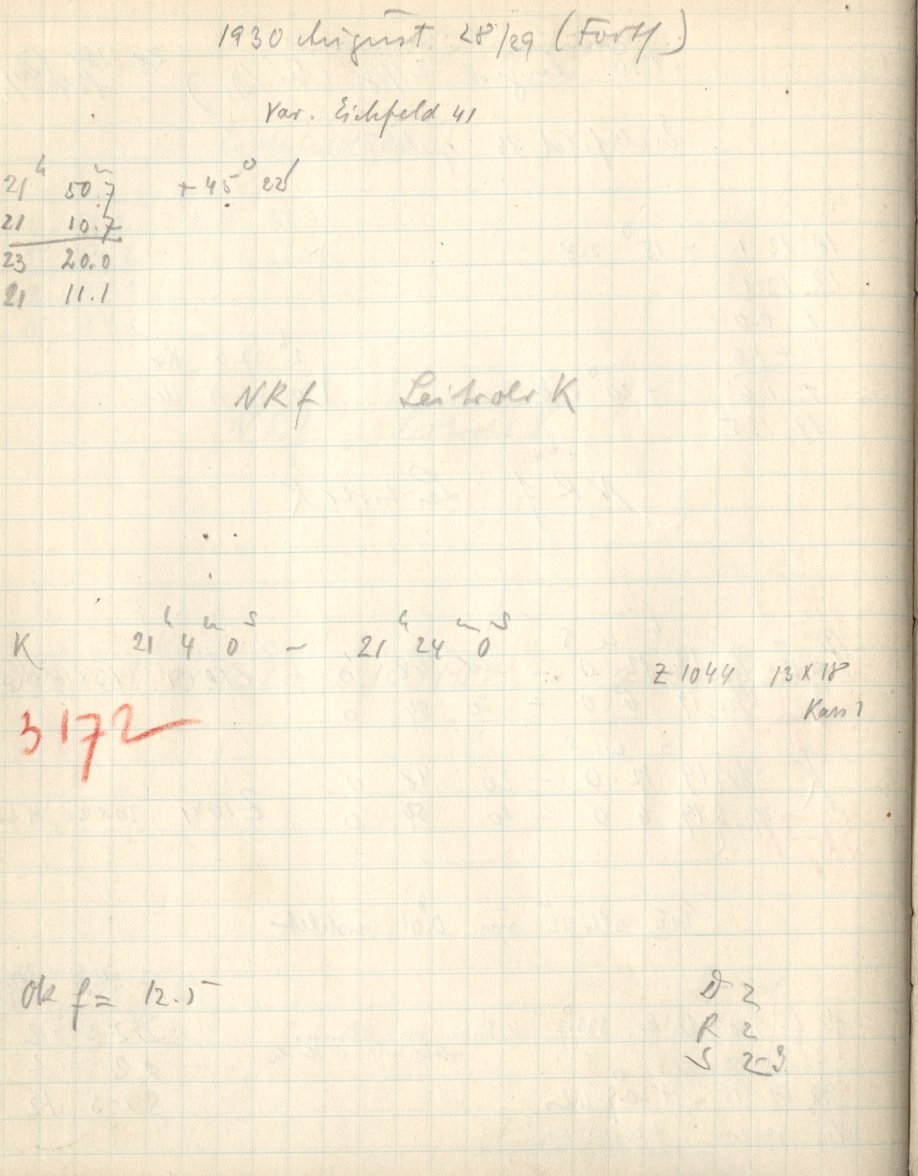 1930 August 28/29 (Forts.)
Var. Eichfeld 41
21ʰ 50ᵐ.7 + 45° 22'
21 10.7
23 20.0
21 11.1
NRf Leitrohr K
K 21ʰ 4ᵐ 0ˢ – 21ʰ 24ᵐ 0ˢ
Z 1044 13 X 18
Kass 1
3172
Ok f = 12.5
D 2
R 2
S 2-3